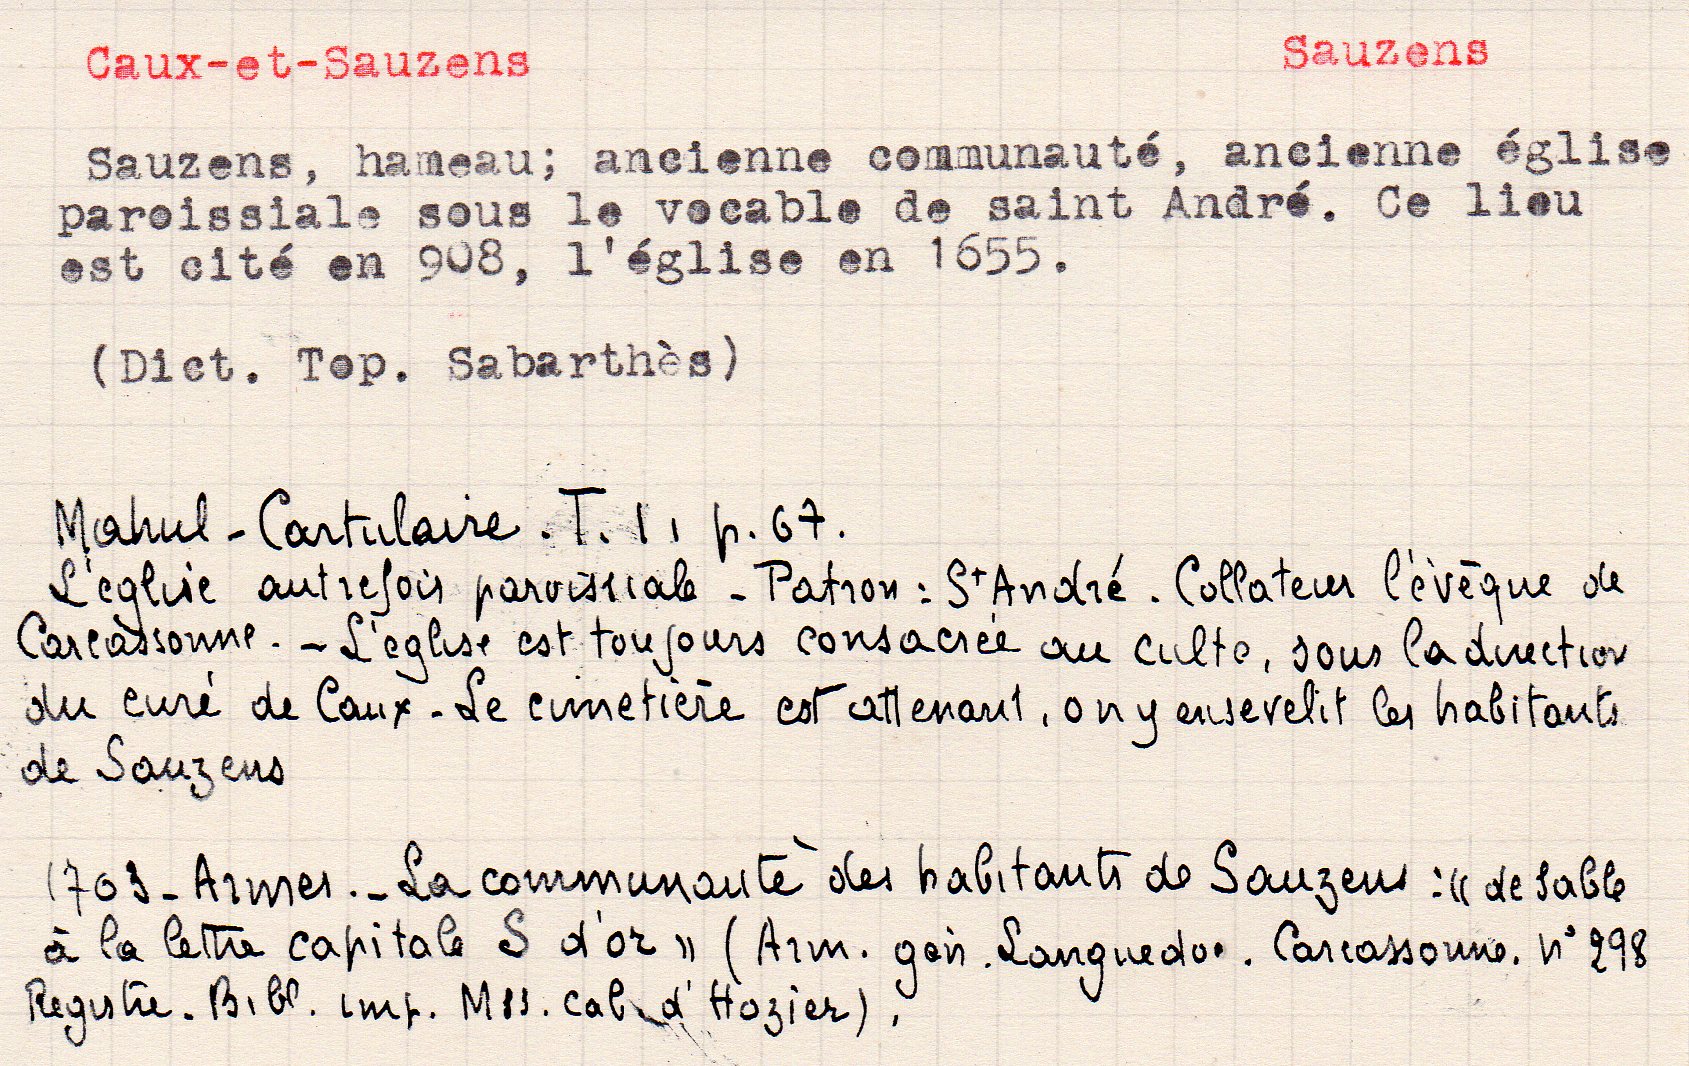 Caux-et-Sauzens Sauzens
Sauzens, hameau; ancienne communauté, ancienne église
paroissiale sous le vocable de saint André. Ce lieu
est cité en 908, l'église en 1655.
(Dict. Top. Sabarthès)
Mahul - Cartulaire. T. 1, p. 67.
L'église autrefois paroissiale - Patron : St André. Collateur l'évêque de
Carcassonne. - L'église est toujours consacrée au culte, sous la direction
du curé de Caux - Le cimetière est attenant, on y ensevelit les habitants
de Sauzens
1703 - Armes. - La communauté des habitants de Sauzens : « de sable
à la lettre capitale S d'or » (Arm. gén. Languedoc. Carcassonne. n° 298
Registre. Bibl. imp. Mss. cab. d'Hozier).